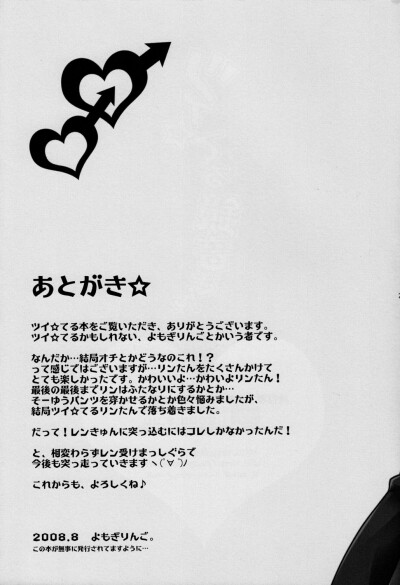 あとがき☆
ツイ☆てる本をご覧いただき、ありがとうございます。
ツイ☆てるかもしれない、よもぎりんごとかいう者です。
なんだか…結局オチとかどうなのこれ！？
って感じではございますが…リンたんをたくさんかけて
とても楽しかったです。かわいいよ…かわいよリンたん！
最後の最後までリンはふたなりにするかとか…
そーゆうパンツを穿かせるかとか色々悩みましたが、
結局ツイ☆てるリンたんで落ち着きました。
だって！レンきゅんに突っ込むにはコレしかなかったんだ！
と、相変わらずレン受けまっしぐらで
今後も突っ走っていきますヽ(´∀｀)ノ
これからも、よろしくね♪
2008.8　よもぎりんご。
この本が無事に発行されてますように…